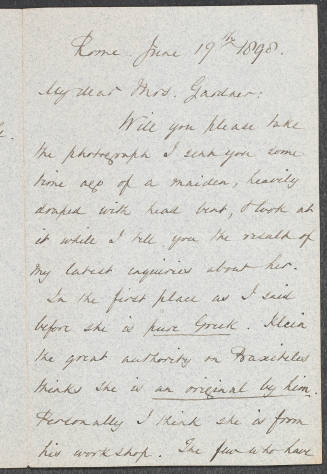 Rome June 19th 1898.
My dear Mrs. Gardner:
Will you please take
the photograph I sent you some
time ago of a maiden, heavily
draped with head bent, & look at
it while I tell you the result of
my latest inquiries about her.
In the first place as I said
before she is pure Greek. Klein
the great authority on Praxiteles
thinks she is an original by him.
Personally I think she is from
his workshop. The few who have